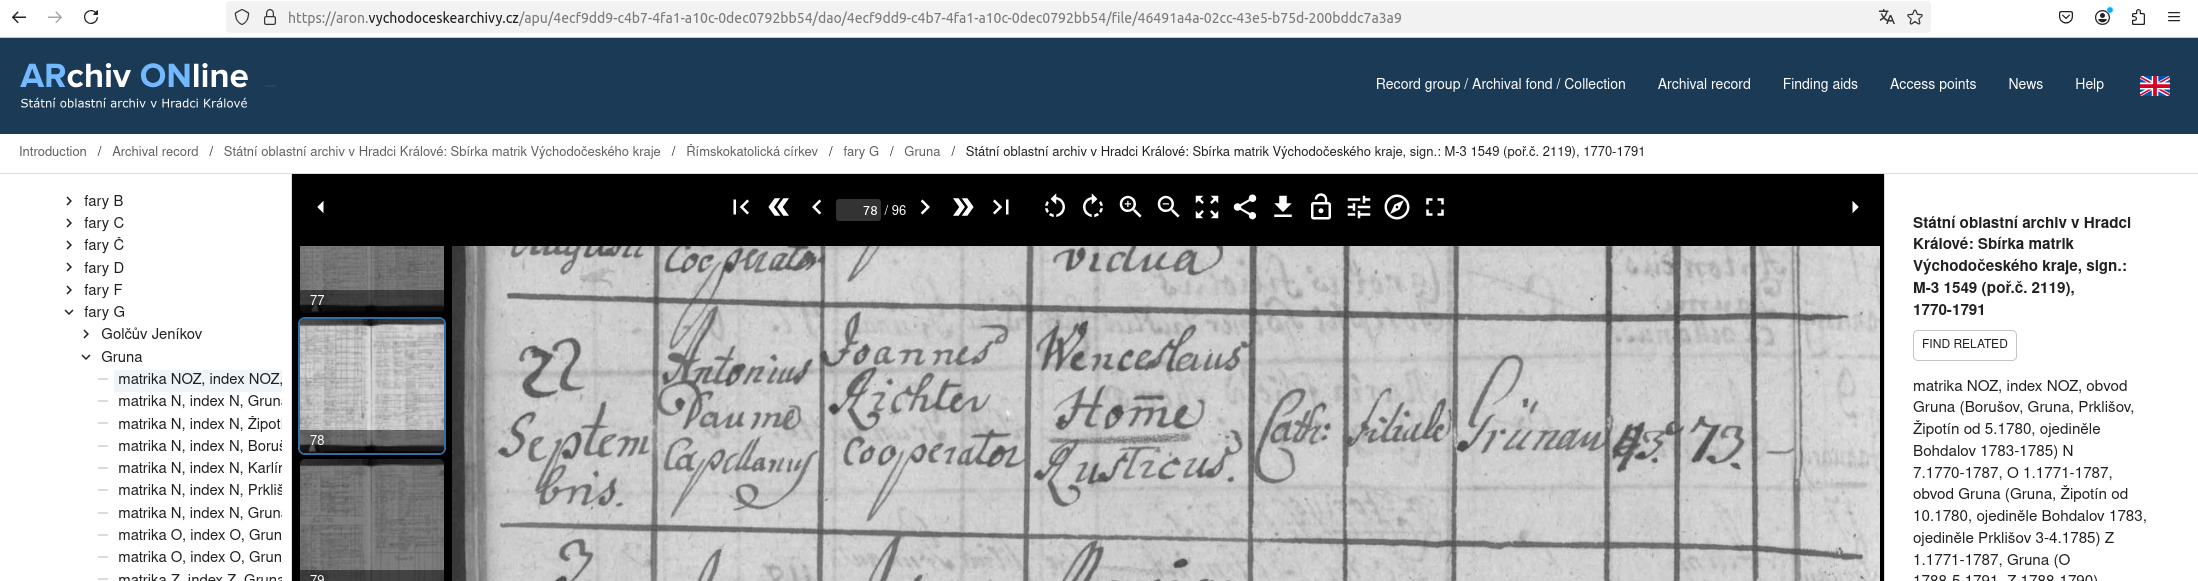 https://aron.vychodoceskearchivy.cz/apu/4ecf9dd9-c4b7-4fa1-a10c-0dec0792bb54/dao/4ecf9dd9-c4b7-4fa1-a10c-0dec0792bb54/file/46491a4a-02cc-43e5-b75d-200bddc7a3a9
ARchiv ONline
Státní oblastní archiv v Hradci Králové
Record group / Archival fond / Collection Archival record Finding aids Access points News Help
Introduction / Archival record / Státní oblastní archiv v Hradci Králové: Sbírka matrik Východočeského kraje / Římskokatolická církev / fary G / Gruna / Státní oblastní archiv v Hradci Králové: Sbírka matrik Východočeského kraje, sign.: M-3 1549 (poř.č. 2119), 1770-1791
fary B
fary C
fary Č
fary D
fary F
fary G
Golčův Jeníkov
Gruna
matrika NOZ, index NOZ,
matrika N, index N, Grun
matrika N, index N, Žipot
matrika N, index N, Boruš
matrika N, index N, Karlír
matrika N, index N, Prkliš
matrika N, index N, Grun
matrika O, index O, Grun
matrika O, index O, Grun
matrika Z, index Z, Grun
78 / 96
77
78
79
Cooperator vidua
22 Septem bris.
Antonius Daume Capellanus
Joannes Richter Cooperator
Wenceslaus Hom̅e Rusticus.
Cath: filiale Grünau 43. 73. -
Státní oblastní archiv v Hradci
Králové: Sbírka matrik
Východočeského kraje, sign.:
M-3 1549 (poř.č. 2119),
1770-1791
FIND RELATED
matrika NOZ, index NOZ, obvod
Gruna (Borušov, Gruna, Prklišov,
Žipotín od 5.1780, ojediněle
Bohdalov 1783-1785) N
7.1770-1787, O 1.1771-1787,
obvod Gruna (Gruna, Žipotín od
10.1780, ojediněle Bohdalov 1783,
ojediněle Prklišov 3-4.1785) Z
1.1771-1787, Gruna (O
1788-5.1791, Z 1788-1790)